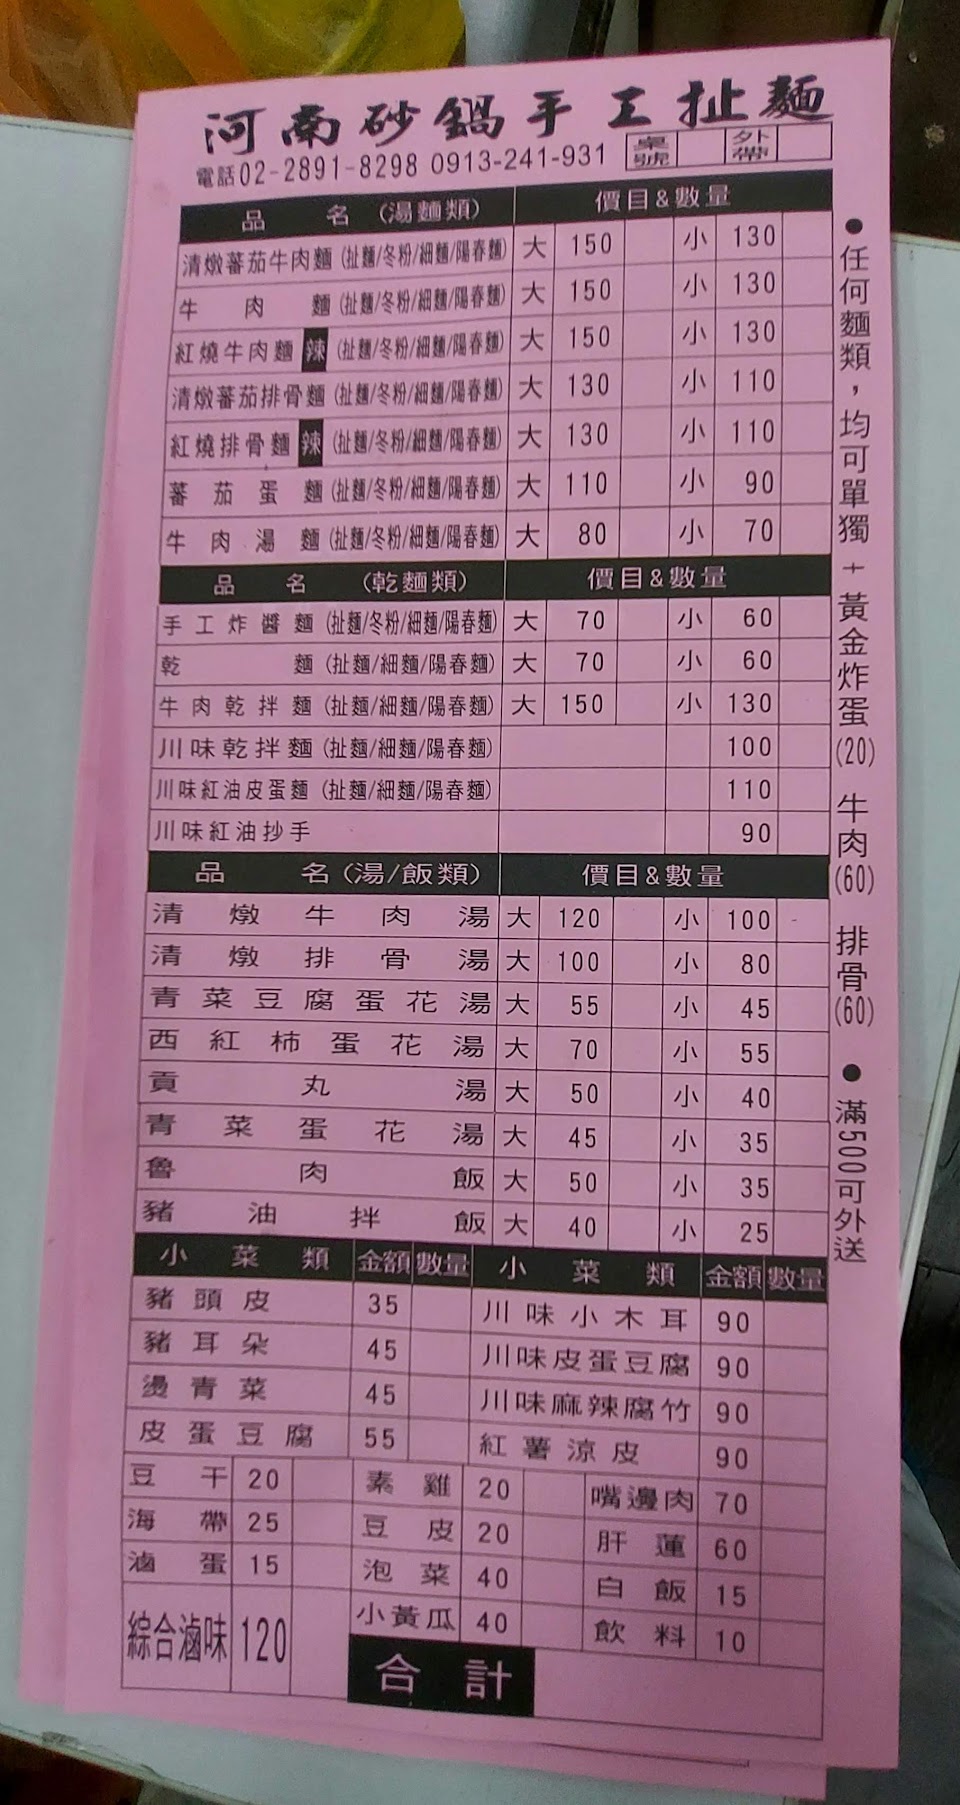 河南砂鍋手工扯麵
電話02-2891-8298 0913-241-931 桌號 外帶
品名(湯麵類) 價目&數量
清燉蕃茄牛肉麵(扯麵/冬粉/細麵/陽春麵) 大 150 小 130
牛肉麵(扯麵/冬粉/細麵/陽春麵) 大 150 小 130
紅燒牛肉麵 辣 (扯麵/冬粉/細麵/陽春麵) 大 150 小 130
清燉蕃茄排骨麵(扯麵/冬粉/細麵/陽春麵) 大 130 小 110
紅燒排骨麵 辣 (扯麵/冬粉/細麵/陽春麵) 大 130 小 110
蕃茄蛋麵(扯麵/冬粉/細麵/陽春麵) 大 110 小 90
牛肉湯麵(扯麵/冬粉/細麵/陽春麵) 大 80 小 70
品名(乾麵類) 價目&數量
手工炸醬麵(扯麵/冬粉/細麵/陽春麵) 大 70 小 60
乾麵(扯麵/細麵/陽春麵) 大 70 小 60
牛肉乾拌麵(扯麵/細麵/陽春麵) 大 150 小 130
川味乾拌麵(扯麵/細麵/陽春麵) 100
川味紅油皮蛋麵(扯麵/細麵/陽春麵) 110
川味紅油抄手 90
品名(湯/飯類) 價目&數量
清燉牛肉湯 大 120 小 100
清燉排骨湯 大 100 小 80
青菜豆腐蛋花湯 大 55 小 45
西紅柿蛋花湯 大 70 小 55
貢丸湯 大 50 小 40
青菜蛋花湯 大 45 小 35
魯肉飯 大 50 小 35
豬油拌飯 大 40 小 25
小菜類 金額 數量 小菜類 金額 數量
豬頭皮 35 川味小木耳 90
豬耳朵 45 川味皮蛋豆腐 90
燙青菜 45 川味麻辣腐竹 90
皮蛋豆腐 55 紅薯涼皮 90
豆干 20 素雞 20 嘴邊肉 70
海帶 25 豆皮 20 肝蓮 60
滷蛋 15 泡菜 40 白飯 15
綜合滷味 120 小黃瓜 40 飲料 10
合計
●任何麵類，均可單獨+黃金炸蛋(20) 牛肉(60) 排骨(60) ●滿500可外送